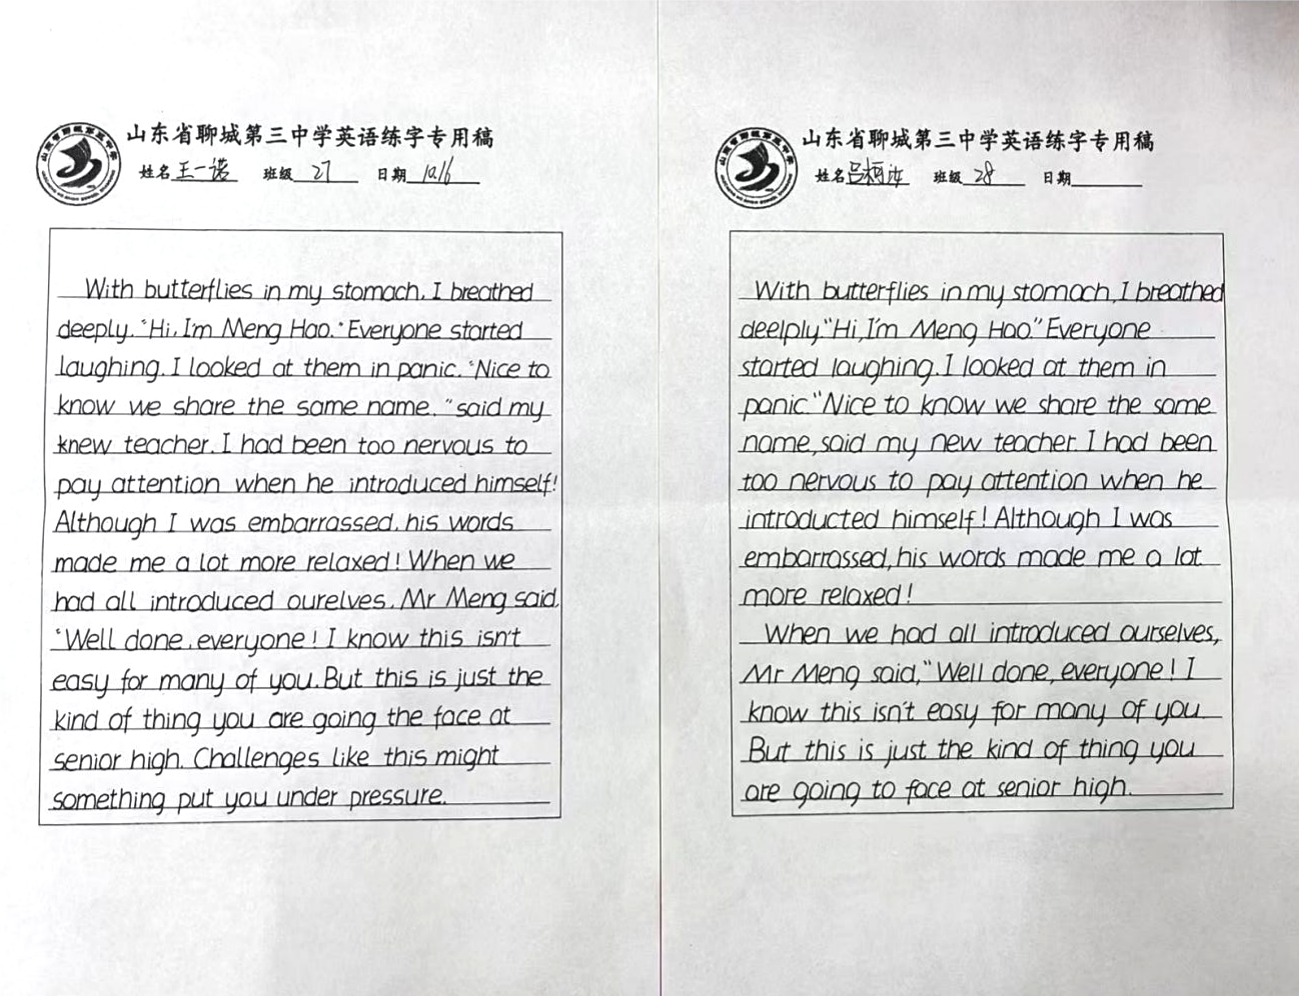 山东省聊城第三中学英语练字专用稿
姓名 王一诺 班级 27 日期 10.16
With butterflies in my stomach, I breathed
deeply. "Hi, I'm Meng Hao." Everyone started
laughing. I looked at them in panic. "Nice to
know we share the same name. "said my
knew teacher. I had been too nervous to
pay attention when he introduced himself!
Although I was embarrassed, his words
made me a lot more relaxed! When we
had all introduced ourelves, Mr Meng said,
"Well done, everyone! I know this isn't
easy for many of you. But this is just the
kind of thing you are going the face at
senior high. Challenges like this might
something put you under pressure.
山东省聊城第三中学英语练字专用稿
姓名 吕柯汝 班级 28 日期
With butterflies in my stomach, I breathed
deelply. "Hi, I'm Meng Hao." Everyone
started laughing. I looked at them in
panic. "Nice to know we share the same
name, said my new teacher. I had been
too nervous to pay attention when he
introducted himself! Although I was
embarrassed, his words made me a lot
more relaxed!
When we had all introduced ourselves,
Mr Meng said, "Well done, everyone! I
know this isn't easy for many of you.
But this is just the kind of thing you
are going to face at senior high.